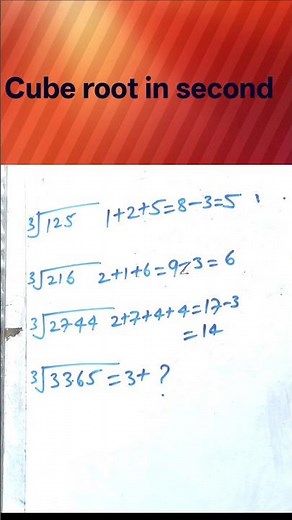 Cube root in second
∛125 1+2+5=8-3=5
∛216 2+1+6=9-3=6
∛2744 2+7+4+4=17-3
=14
∛3365=3+ ?